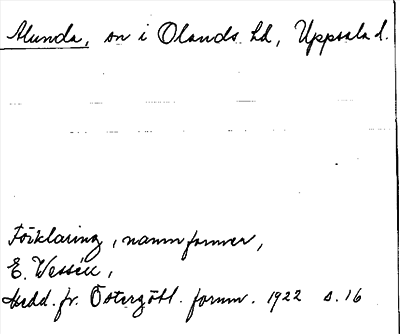 Alunda, sn i Olands hd, Uppsala l.
Förklaring, namnformer,
E. Wessén,
Medd. fr. Östergötl. fornm. 1922 s. 16